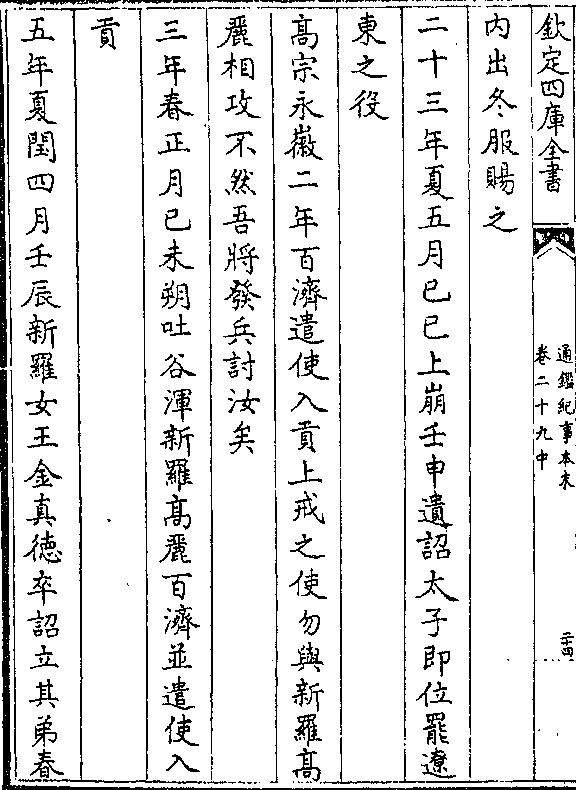 欽定四庫全書
通鑑紀事本末
卷二十九中
二十四
内出冬服賜之
二十三年夏五月己巳上崩壬申遺詔太子即位罷遼
東之役
髙宗永徽二年百濟遣使入貢上戒之使勿與新羅髙
麗相攻不然吾將發兵討汝矣
三年春正月己未朔吐谷渾新羅髙麗百濟並遣使入
貢
五年夏閏四月壬辰新羅女王金真德卒詔立其弟春